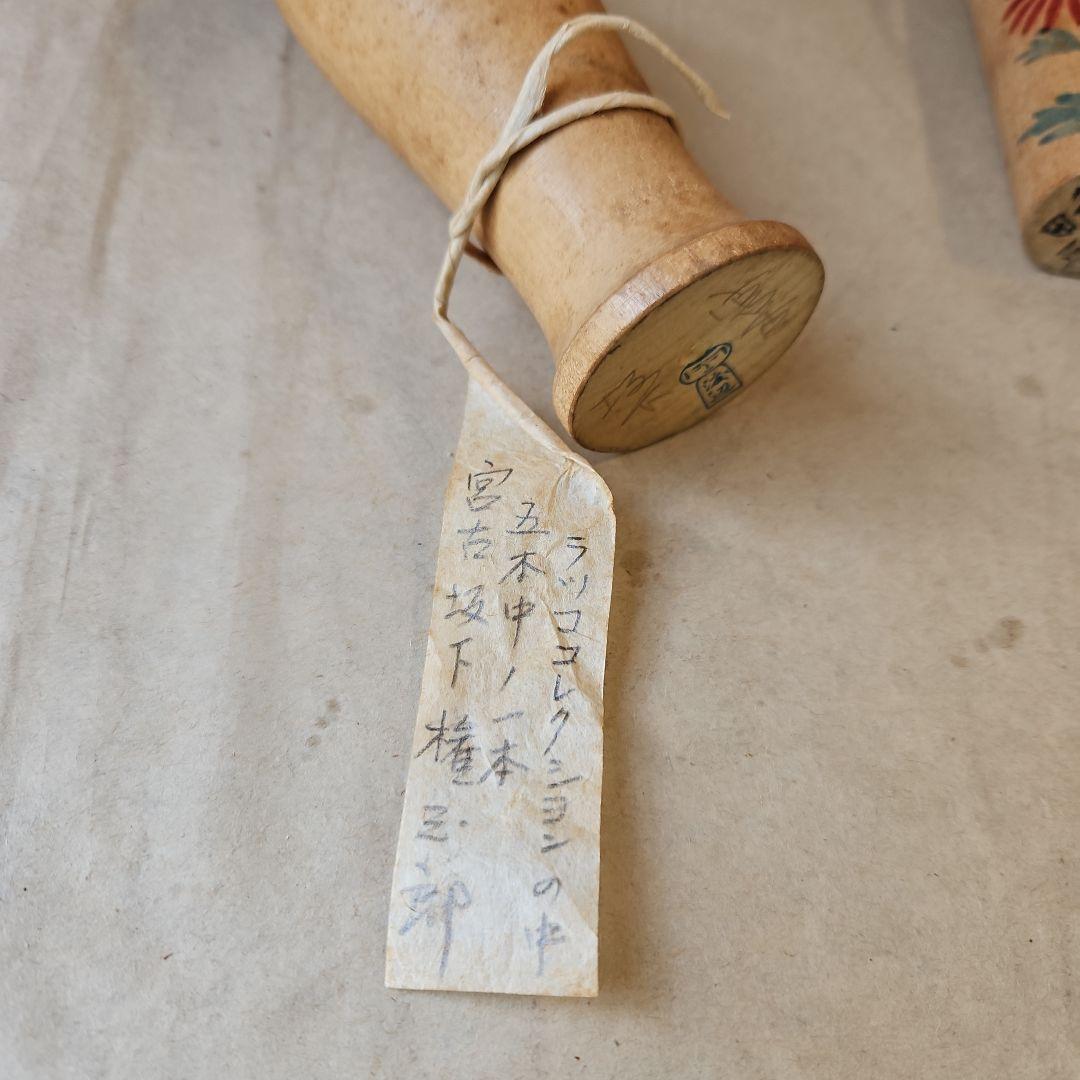 ラツココレクシヨンの中
五本中ノ一本
宮古 坂下 権三郎